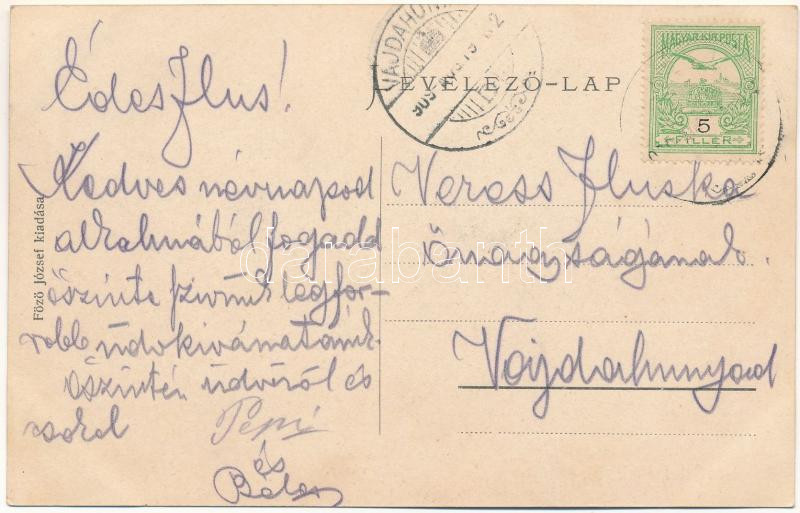 VAJDAHUNYAD
909
LEVELEZŐ-LAP
MAGYAR KIR. POSTA
5
FILLÉR
Édes Ilus!
Kedves névnapod
alkalmából fogadd
őszinte szivünk legfor-
róbb üdvkivánatait
őszintén üdvözöl és
csókol
Pepi
és
Béla
Veress Iluska
Őnagyságának.
Vajdahunyad
Főző József kiadása
darabanth